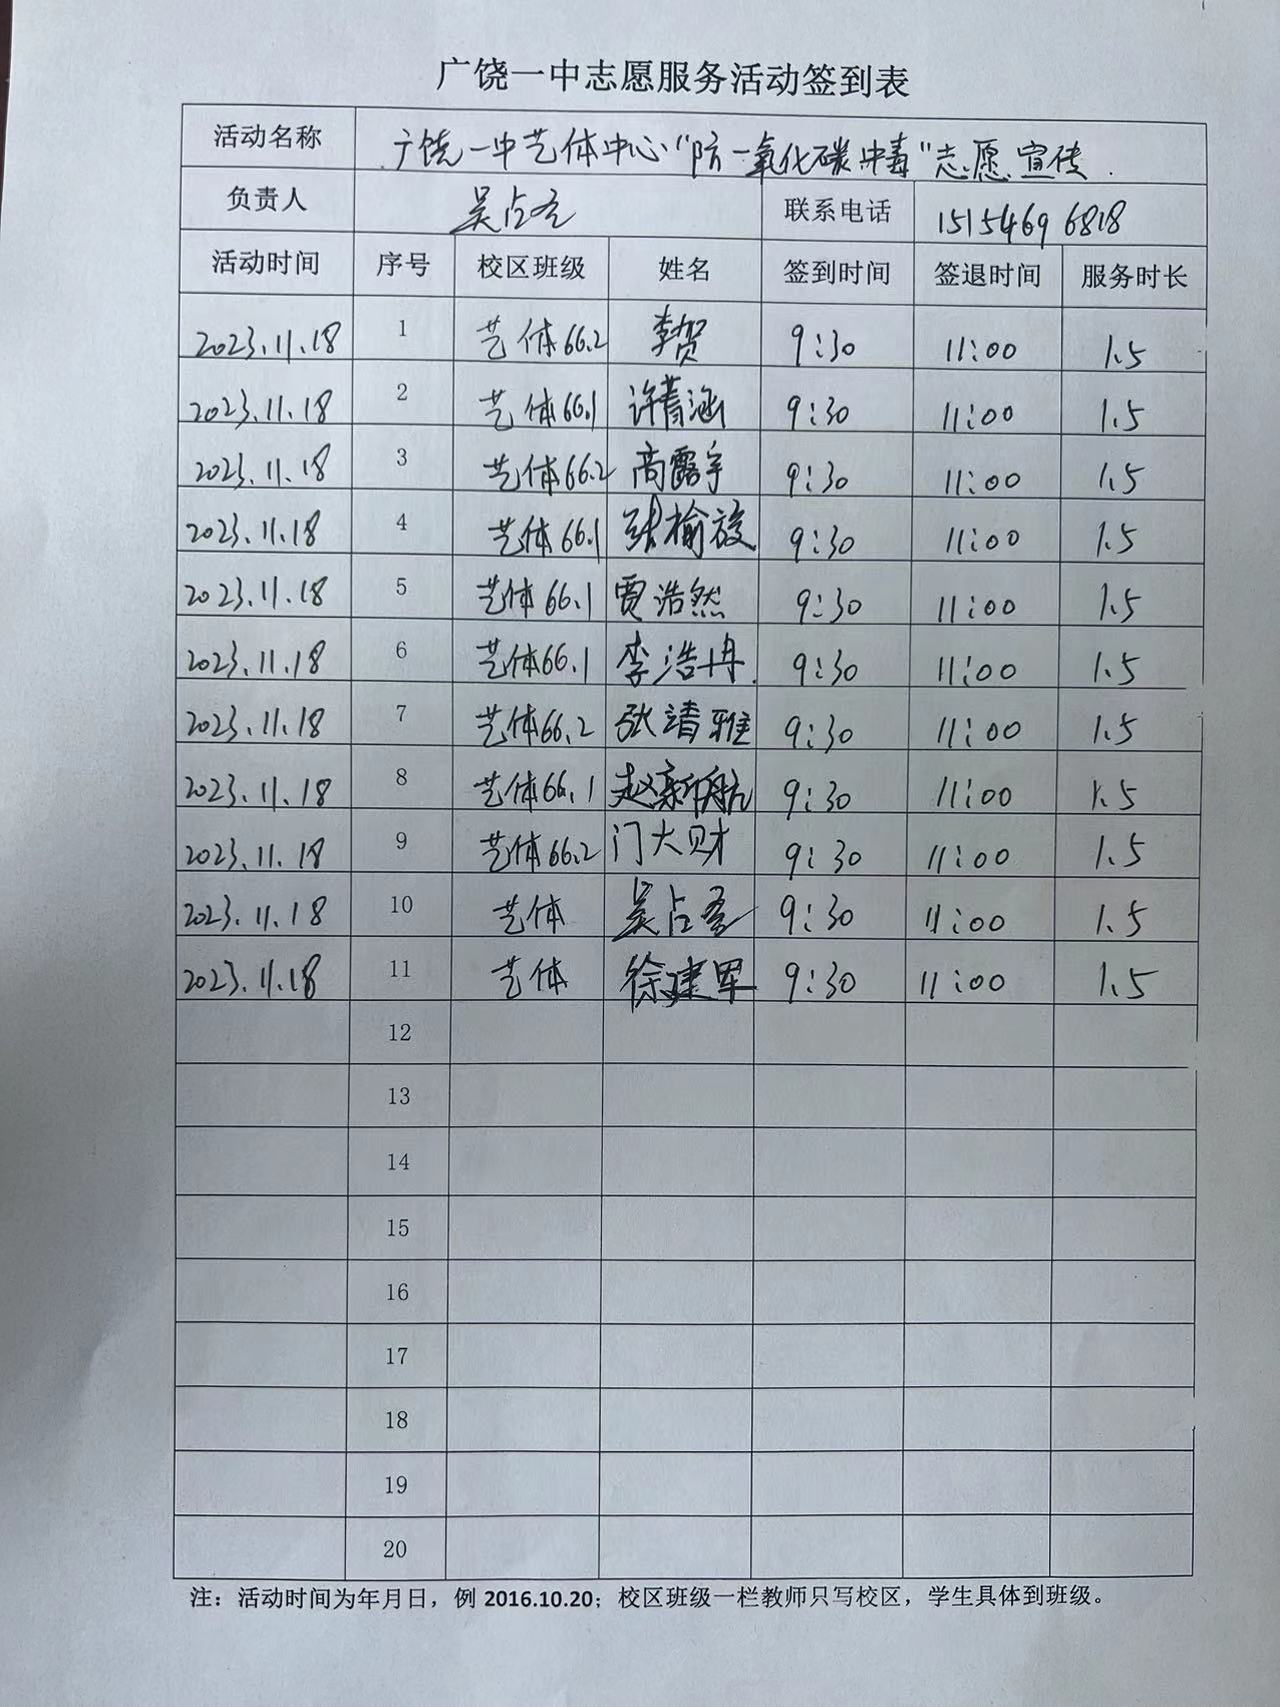 广饶一中志愿服务活动签到表
活动名称 广饶一中艺体中心“防一氧化碳中毒”志愿宣传.
负责人 吴占 联系电话 15154696818
活动时间 序号 校区班级 姓名 签到时间 签退时间 服务时长
2023.11.18 1 艺体66.2 李贺 9:30 11:00 1.5
2023.11.18 2 艺体66.1 许菁涵 9:30 11:00 1.5
2023.11.18 3 艺体66.2 高露宇 9:30 11:00 1.5
2023.11.18 4 艺体66.1 张榆 9:30 11:00 1.5
2023.11.18 5 艺体66.1 贾浩然 9:30 11:00 1.5
2023.11.18 6 艺体66.1 李浩冉 9:30 11:00 1.5
2023.11.18 7 艺体66.2 张靖雅 9:30 11:00 1.5
2023.11.18 8 艺体66.1 赵新航 9:30 11:00 1.5
2023.11.18 9 艺体66.2 门大财 9:30 11:00 1.5
2023.11.18 10 艺体 吴占 9:30 11:00 1.5
2023.11.18 11 艺体 徐建军 9:30 11:00 1.5
12
13
14
15
16
17
18
19
20
注：活动时间为年月日，例 2016.10.20；校区班级一栏教师只写校区，学生具体到班级。